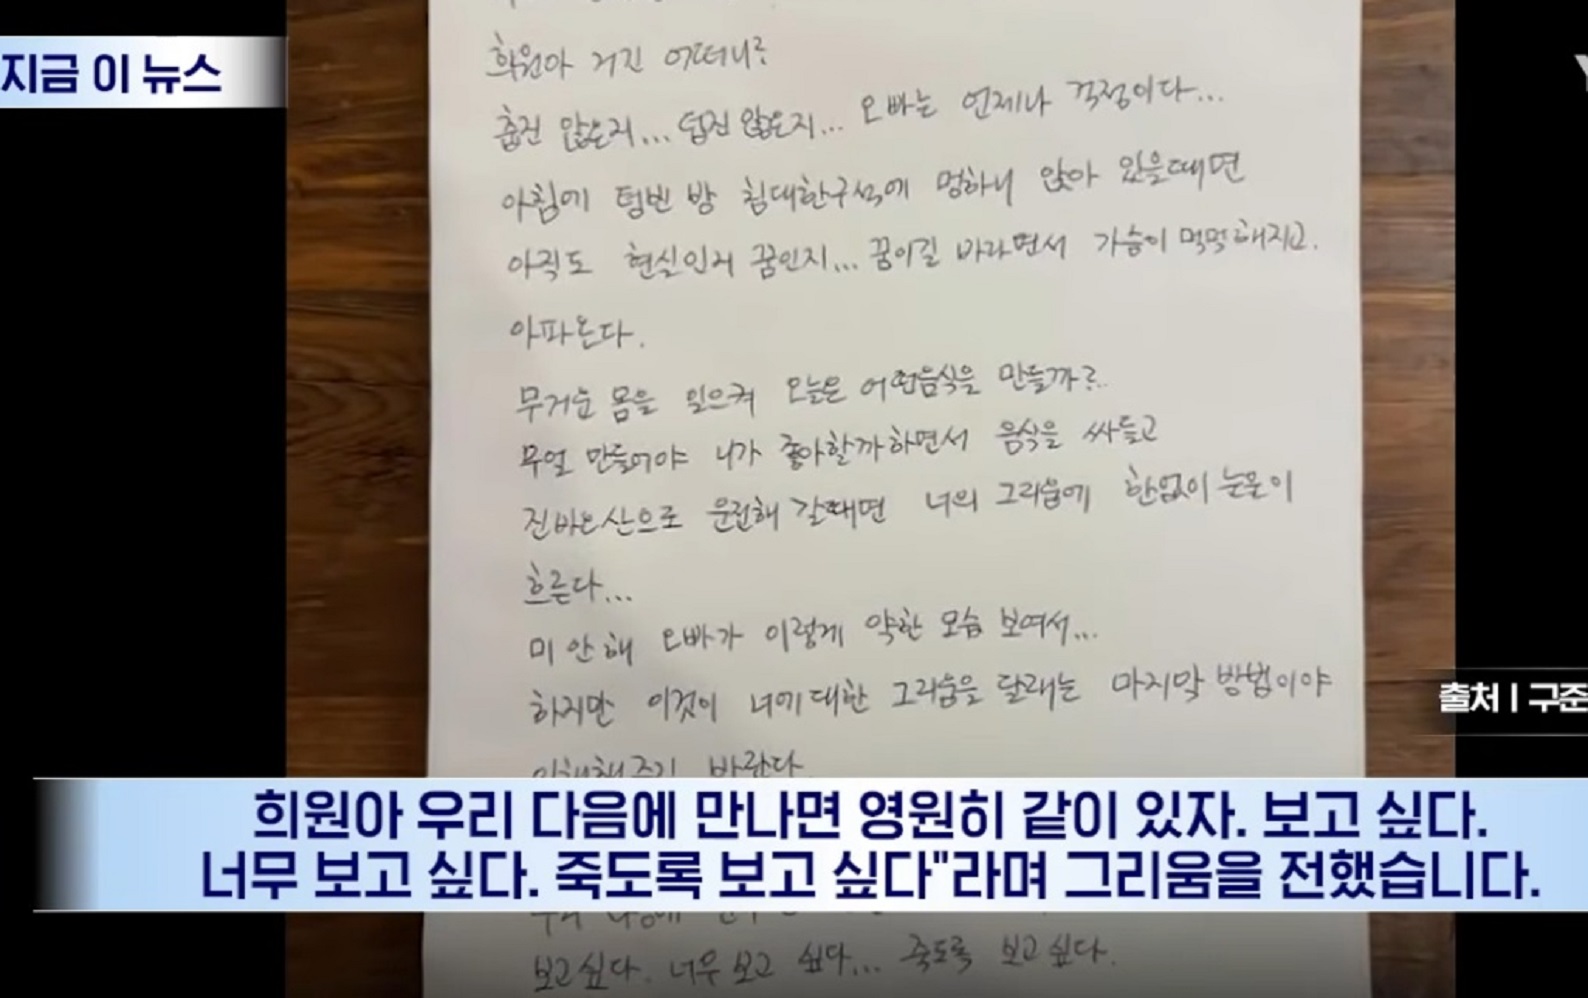 지금 이 뉴스
희원아 거긴 어떠니?
춥진 않은지... 덥진 않은지... 오빠는 언제나 걱정이다...
아침에 텅빈 방 침대한구석에 멍하니 앉아 있을때면
아직도 현실인지 꿈인지... 꿈이길 바라면서 가슴이 먹먹해지고.
아파온다.
무거운 몸을 일으켜 오늘은 어떤음식을 만들까?..
무얼 만들어야 니가 좋아할까하면서 음식을 싸들고
진바는산으로 운전해 갈때면 너의 그리움에 한없이 눈물이
흐른다...
미안해 오빠가 이렇게 약한 모습 보여서...
하지만 이것이 너에대한 그리움을 달래는 마지막 방법이야
출처 | 구준
이해해주기 바란다
희원아 우리 다음에 만나면 영원히 같이 있자. 보고 싶다.
너무 보고 싶다. 죽도록 보고 싶다"라며 그리움을 전했습니다.
보고싶다. 너무 보고 싶다... 죽도록 보고싶다.